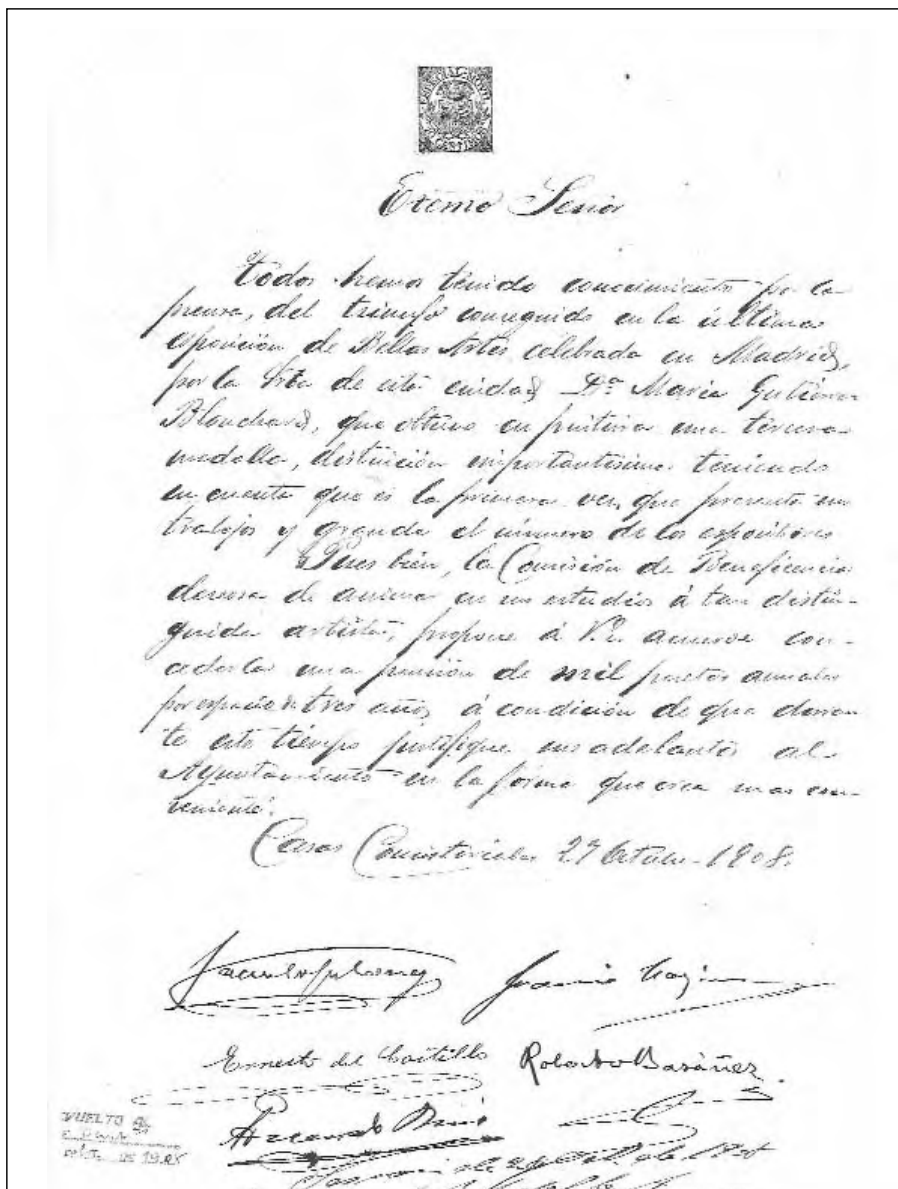 Excmo Señor
Todos hemos tenido conocimiento por la
prensa, del triunfo conseguido en la última
exposición de Bellas Artes celebrada en Madrid,
por la Srta de esta ciudad Dª María Gutiérrez
Blanchard, que obtuvo en pintura una tercera
medalla, distinción importantísima teniendo
en cuenta que es la primera vez, que presenta sus
trabajos y grande el número de los expositores
Pues bien, la Comisión de Beneficencia
deseosa de animar en sus estudios á tan distin-
guida artista, propone á V.E. acuerde con-
cederla una pensión de mil pesetas anuales
por espacio de tres años, á condición de que duran
te este tiempo justifique sus adelantos al
Ayuntamiento en la forma que crea mas con-
veniente.
Casas Consistoriales 27 Octubre 1908.
Ernesto del Castillo
Rosendo Ruiz
VUELTO
DE 1908